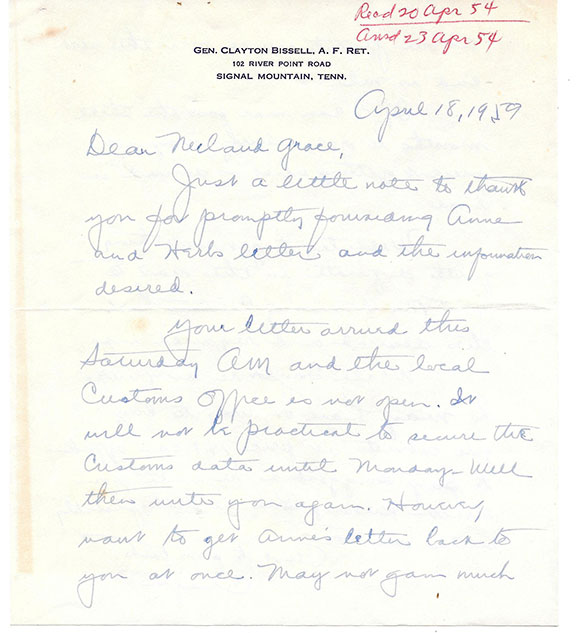 Recd 20 Apr 54
Ansd 23 Apr 54
GEN. CLAYTON BISSELL, A. F. RET.
102 RIVER POINT ROAD
SIGNAL MOUNTAIN, TENN.
April 18, 1959
Dear Neil and Grace,
Just a little note to thank
you for promptly forwarding Anne
and Herbs letter and the information
desired.
Your letter arrived this
Saturday AM and the local
Customs Office is not open. It
will not be practical to secure the
Customs data until Monday - Will
then write you again. However,
want to get Anne's letter back to
you at once. May not gain much